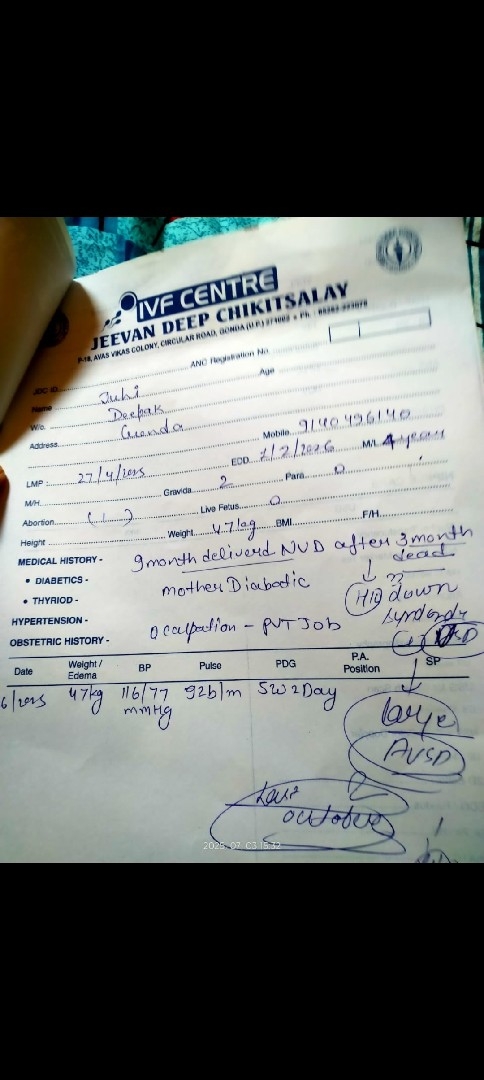 IVF CENTRE
JEEVAN DEEP CHIKITSALAY
P-18, AVAS VIKAS COLONY, CIRCULAR ROAD, GONDA (U.P.)
ANC Registration No
Name Juhi Age
W/o. Deepak
Address Gonda Mobile 9140496140
LMP : 27/4/2025 EDD 1/2/2026 M/L 4 year
M/H Gravida 2 Para 0
Abortion (1) Live Fetus 0
Height Weight 47kg BMI F/H
MEDICAL HISTORY - 9month delivered NVD after 3month dead
DIABETICS - mother Diabetic
THYRIOD - H/o down
HYPERTENSION - Occupation - PVT Job
OBSTETRIC HISTORY -
Date Weight / Edema BP Pulse PDG P.A. Position SP
6/2025 47kg 116/77 mmHg 92b/m 5W2Day
large
AVSD
october
2025 07 03 15:32